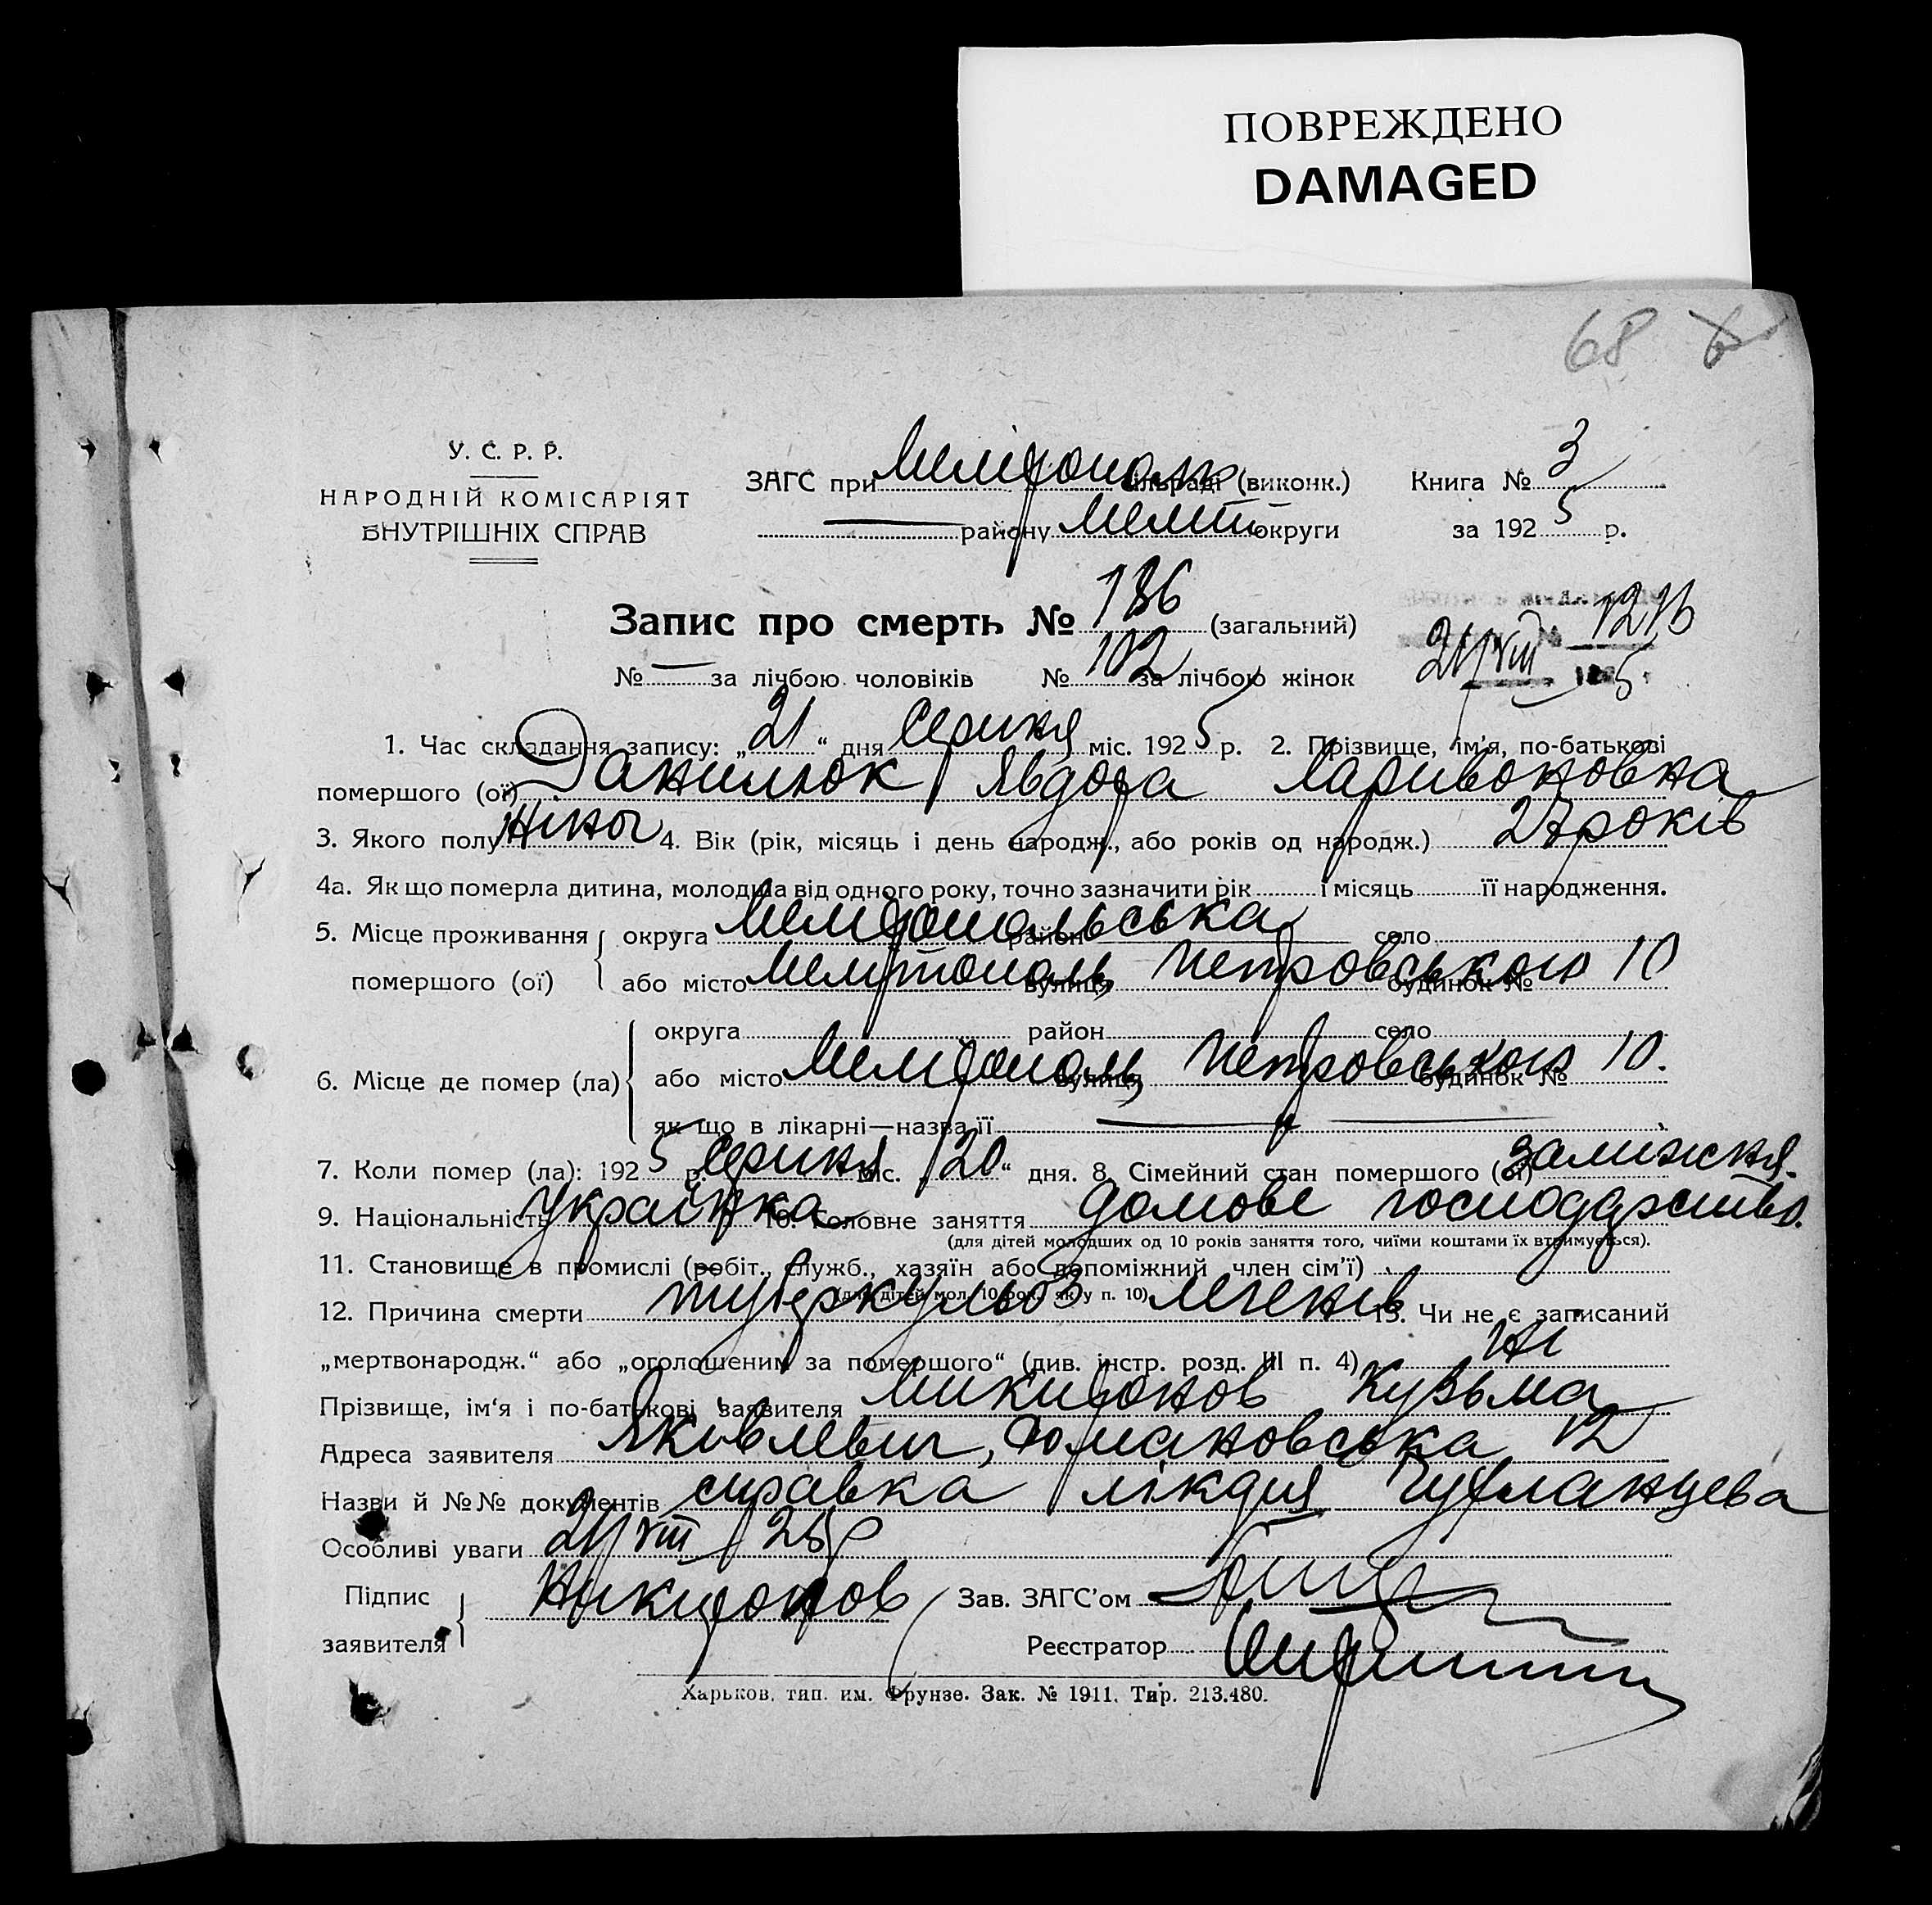 ПОВРЕЖДЕНО
DAMAGED
68
У. С. Р. Р.
НАРОДНІЙ КОМІСАРІЯТ
ВНУТРІШНІХ СПРАВ
ЗАГС при сільраді (виконк.) Книга № 3
району Меліт округи за 1925 р.
Запис про смерть № 186 (загальний)
№ — за лічбою чоловіків № 102 за лічбою жінок
21/VIII 5
1. Час складання запису: „21“ дня серпня міс. 1925 р. 2. Прізвище, ім'я, по-батькові
помершого (ої) Данилюк Явдоха Ларивоновна
3. Якого полу жіноч 4. Вік (рік, місяць і день народж., або років од народж.) 27 років
4а. Як що померла дитина, молодша від одного року, точно зазначити рік і місяць її народження.
5. Місце проживання округа Мелітопольська район — село
помершого (ої) або місто Мелітополь, вулиця Петровського будинок № 10
округа район село
6. Місце де помер (ла) або місто Мелітополь, вулиця Петровського будинок № 10.
як що в лікарні—назва її —
7. Коли помер (ла): 1925 р. серпня міс. „20“ дня. 8. Сімейний стан помершого (ої) замижня.
9. Національність українка 10. Головне заняття домове господарство.
(для дітей молодших од 10 років заняття того, чиїми коштами їх втримується).
11. Становище в промислі (робіт., служб., хазяїн або допоміжний член сім'ї)
(для дітей мол. 10 рок. як у п. 10)
12. Причина смерти туберкульоз легенів 13. Чи не є записаний
„мертвонародж.“ або „оголошеним за помершого“ (див. інстр. розд. III п. 4) ні
Прізвище, ім'я і по-батькові заявителя Кузьма
Адреса заявителя Яковлевич, 12
Назви й №№ документів справка лікаря
Особливі уваги 21/VIII 25 р
Підпис
заявителя
Зав. ЗАГС'ом
Реєстратор
Харьков, тип. им. Фрунзе. Зак. № 1911. Тир. 213.480.